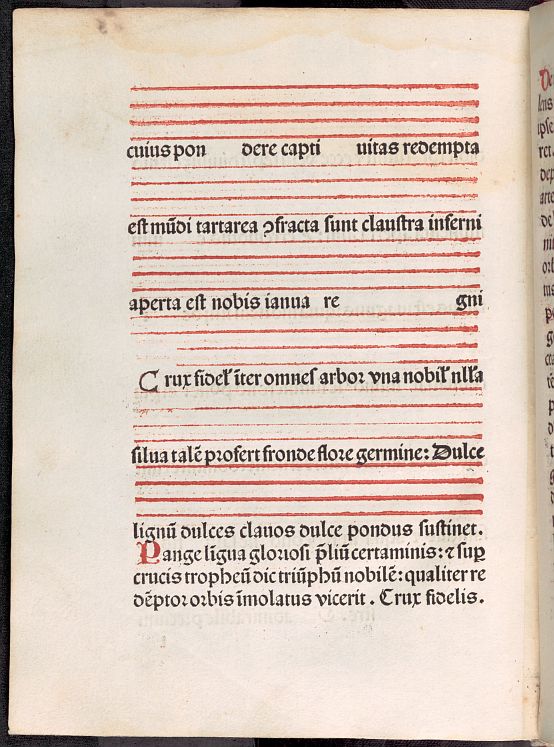 cuius pon dere capti uitas redempta
est mūdi tartarea ꝯfracta sunt claustra inferni
aperta est nobis ianua re gni
Crux fidel̄ īter omnes arbor vna nobil̄ nll̄a
silua talē profert fronde flore germine: Dulce
lignū dulces clauos dulce pondus sustinet.
Pange līgua gloriosi p̄liū certaminis: ⁊ suꝑ
crucis tropheū dic triūphū nobilē: qualiter re
dēptor orbis īmolatus vicerit. Crux fidelis.